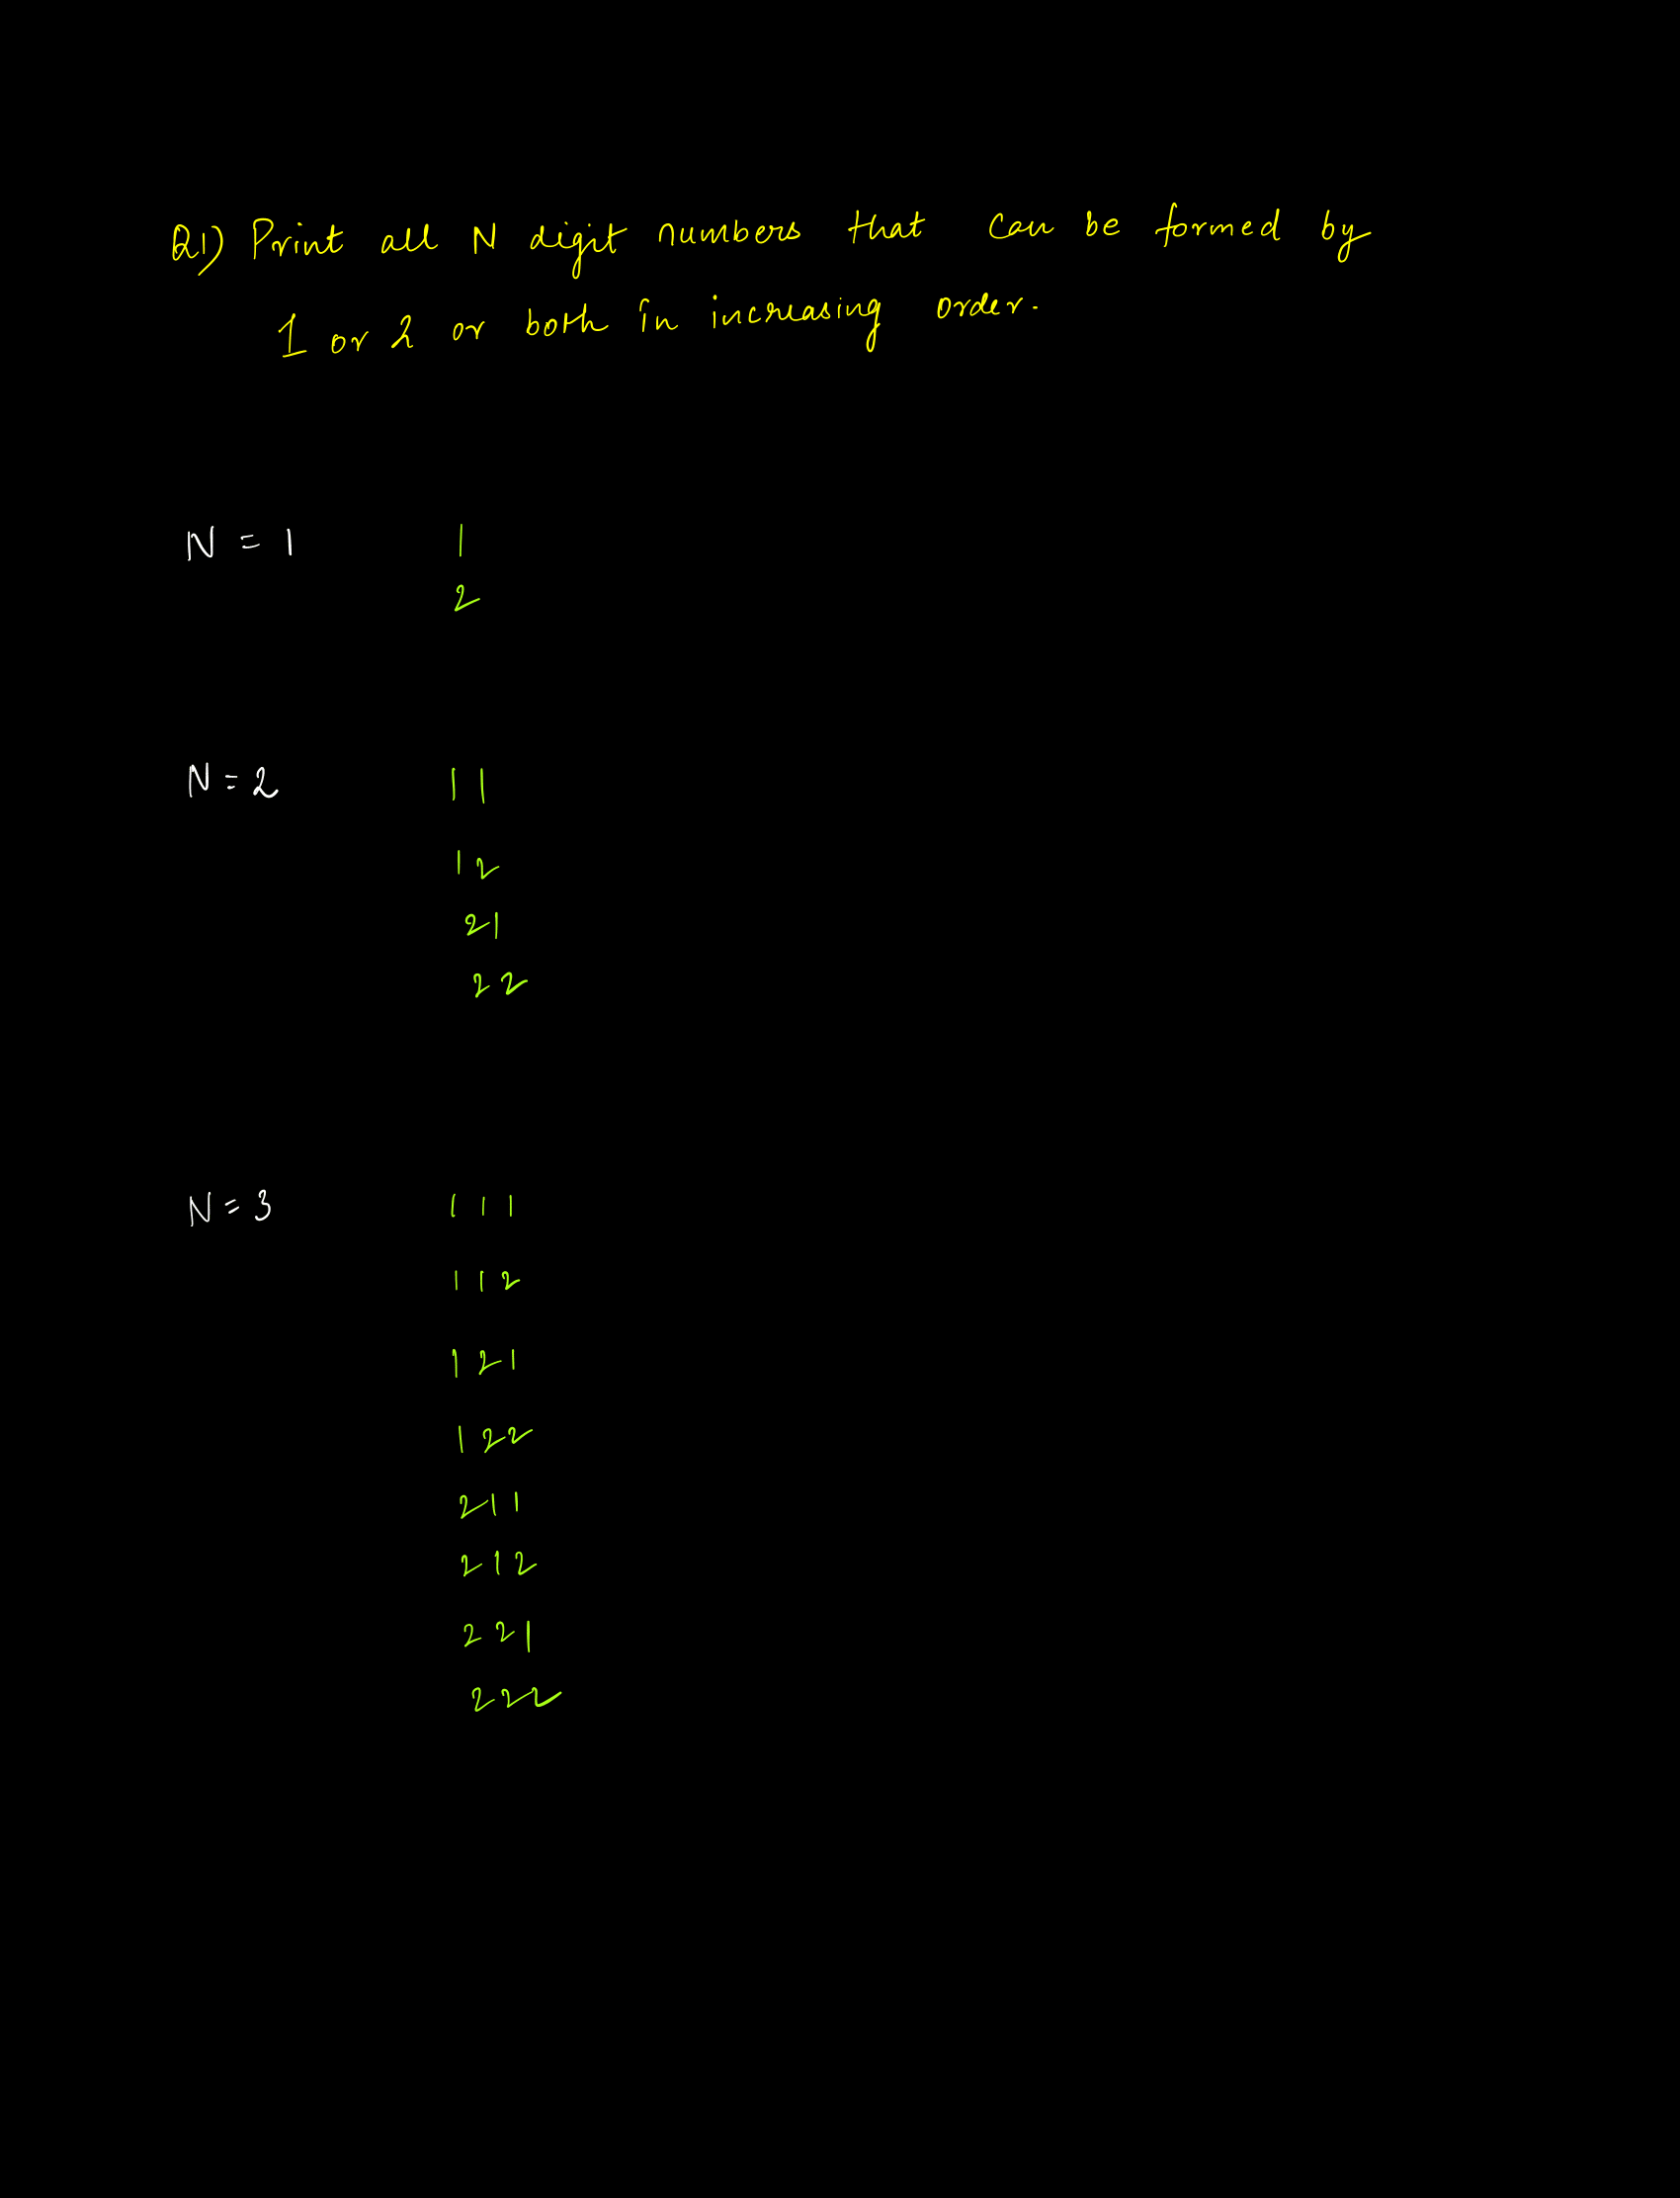 Q1) Print all N digit numbers that can be formed by
1 or 2 or both in increasing order.
N = 1 1
2
N = 2 11
12
21
22
N = 3 111
112
121
122
211
212
221
222